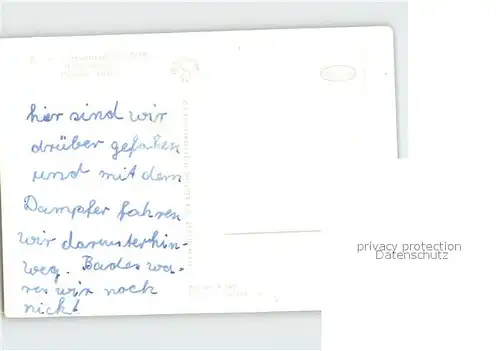 hier sind wir
drüber gefahren
und mit dem
Dampfer fahren
wir darunterhin-
weg. Baden wa-
ren wir noch
nicht
privacy protection
Datenschutz